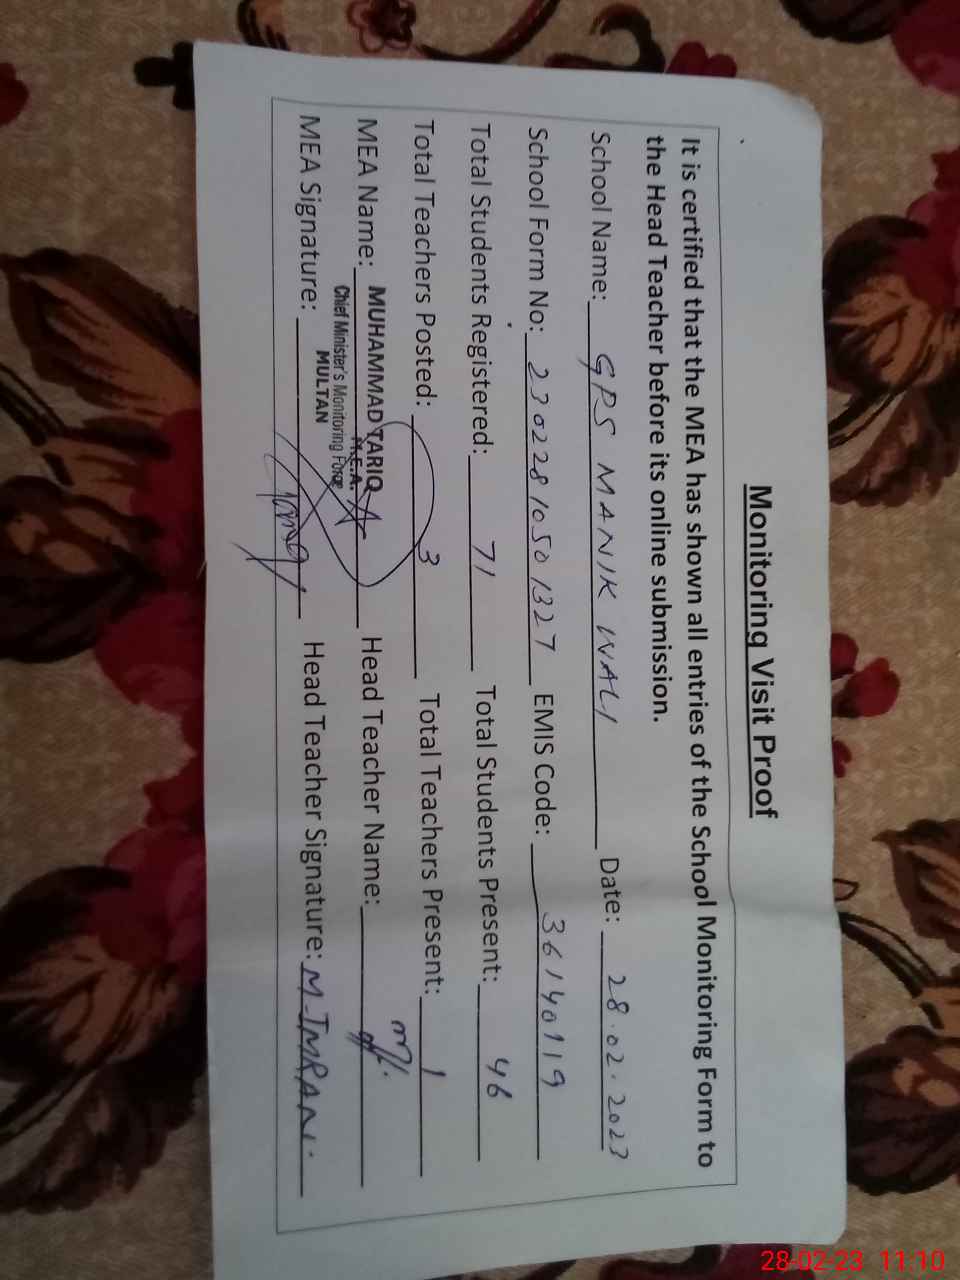 Monitoring Visit Proof
It is certified that the MEA has shown all entries of the School Monitoring Form to
the Head Teacher before its online submission.
School Name: GPS MANIK WALI Date: 28.02.2023
School Form No: 23022810501327 EMIS Code: 36140119
Total Students Registered: 71 Total Students Present: 46
Total Teachers Posted: 3 Total Teachers Present: 1
MEA Name: MUHAMMAD TARIQ Head Teacher Name:
M.E.A.
Chief Minister's Monitoring Force
MULTAN
MEA Signature: Tariq Head Teacher Signature: M-IMRAN.
28-02-23 11:10